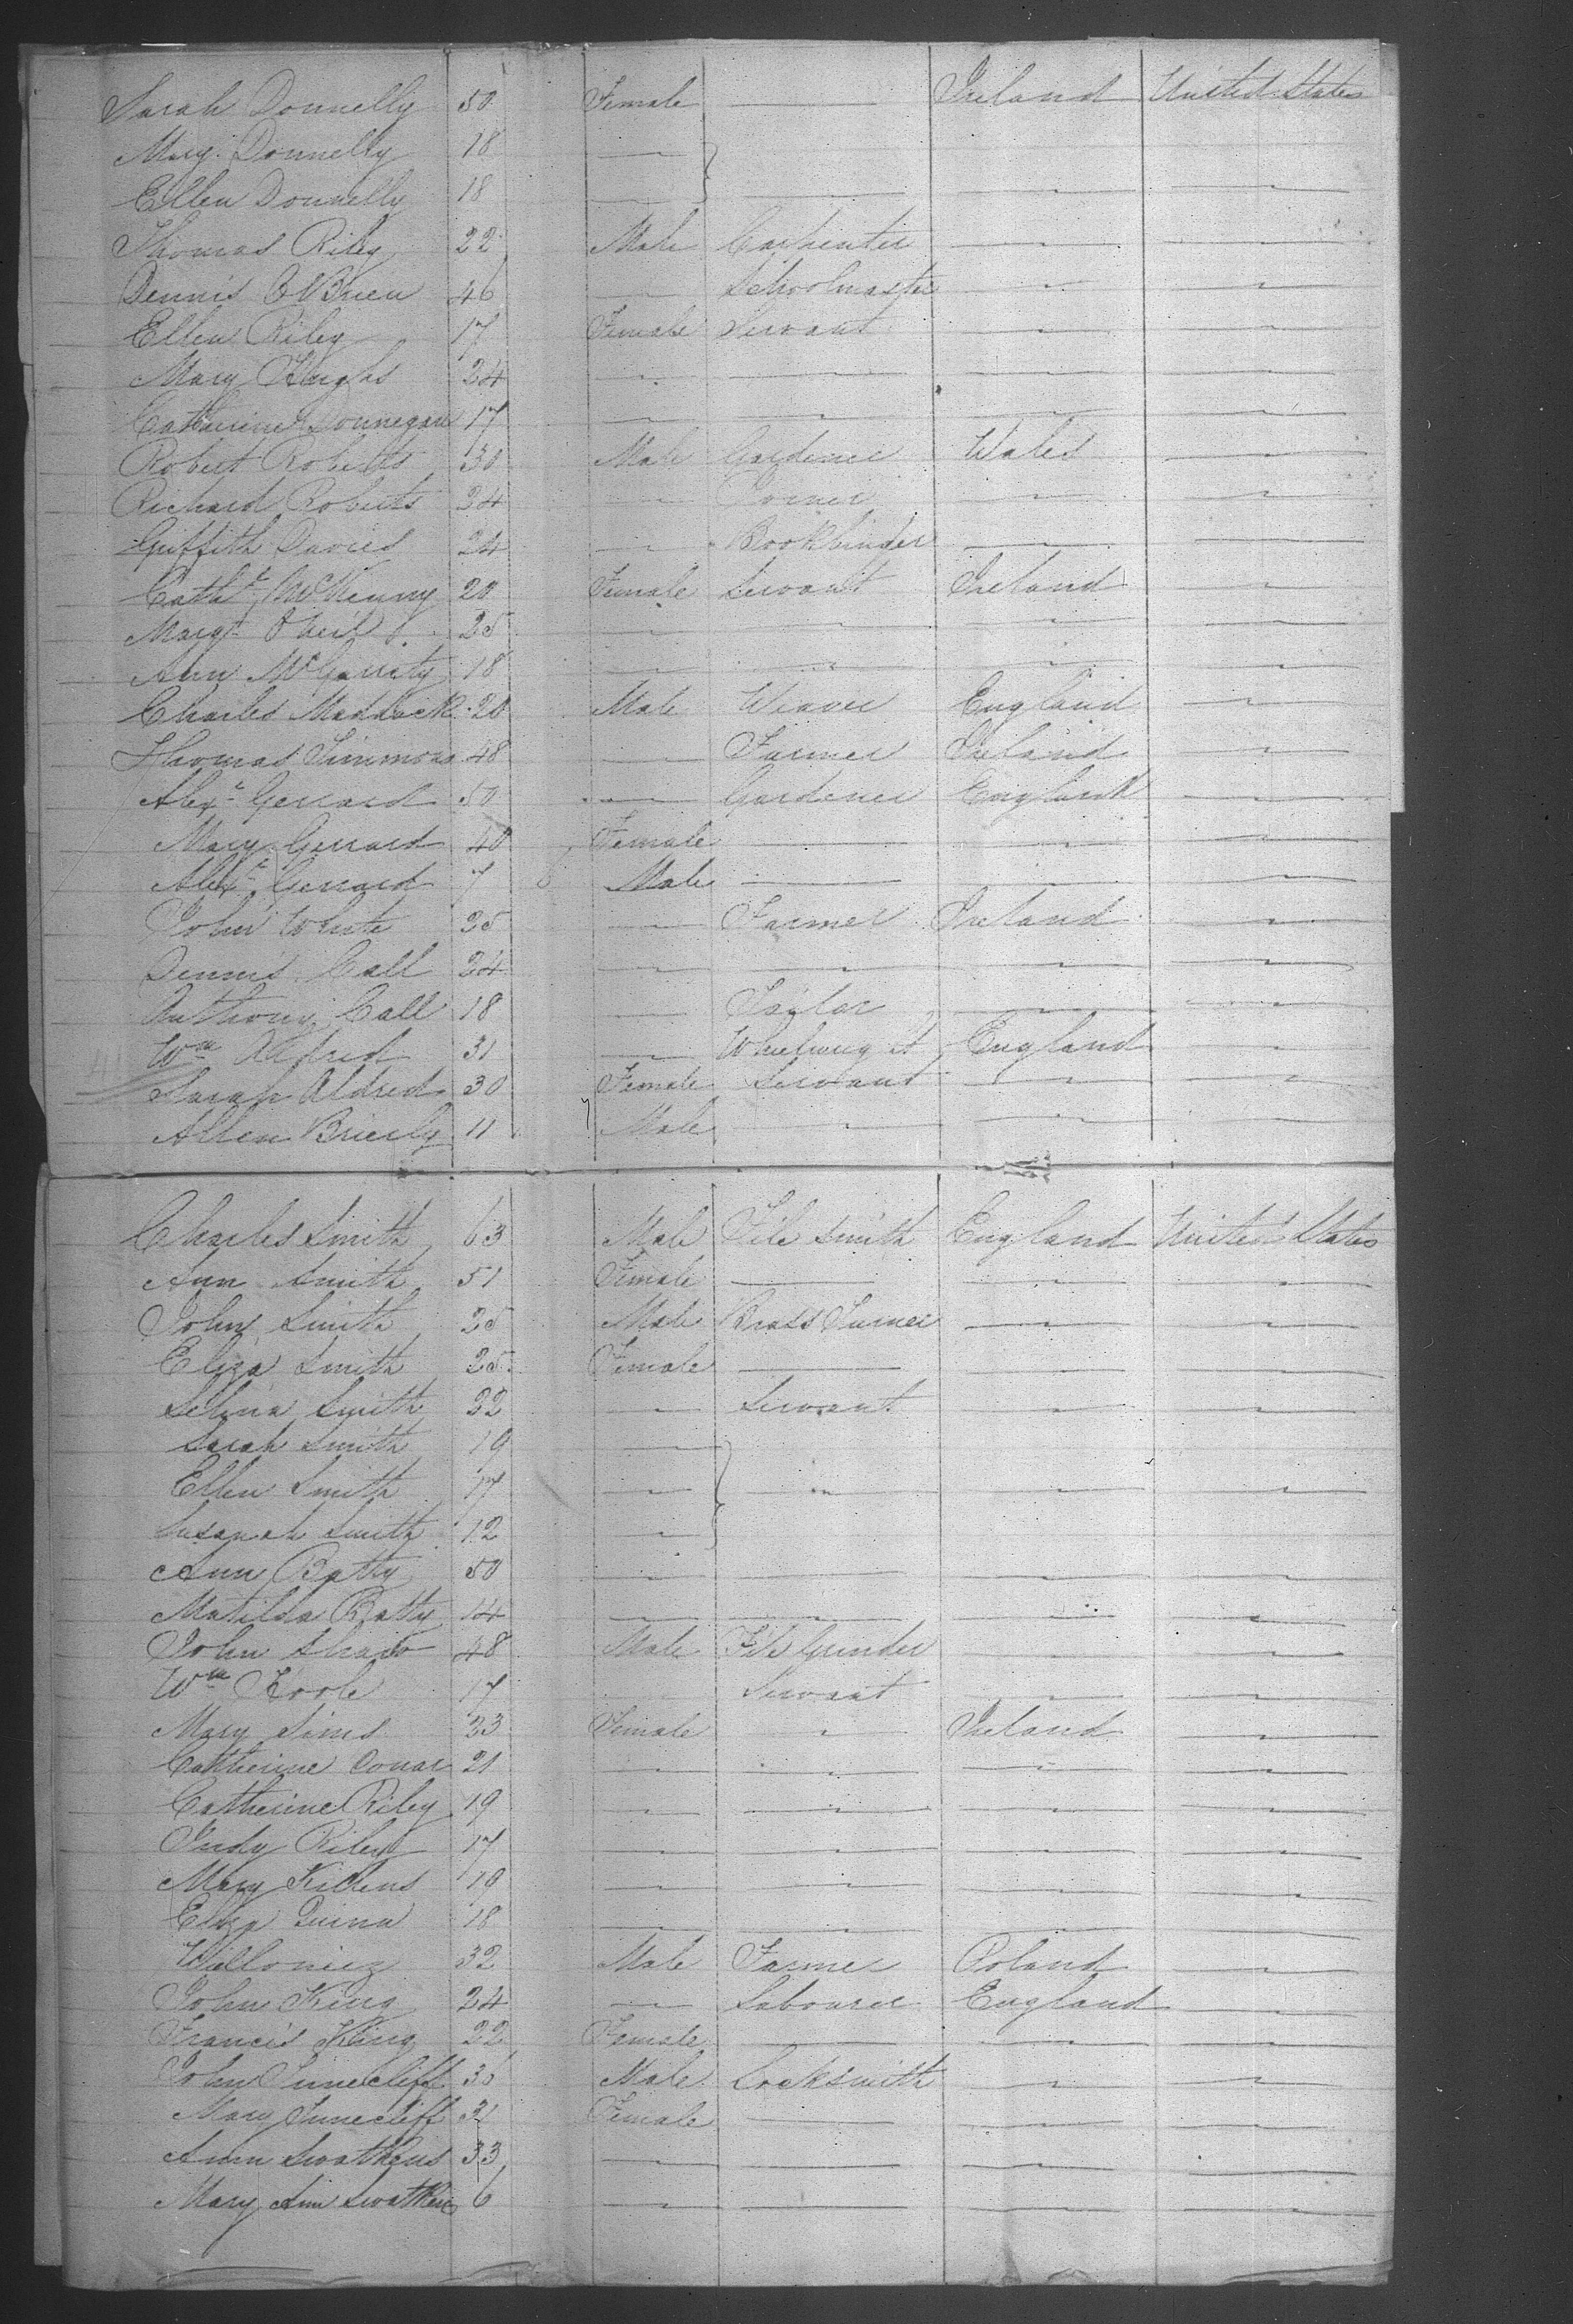 Sarah Donnelly 50 Female — Ireland United States
Mary Donnelly 18 —
Ellen Donnelly 18 — — — —
Thomas Riley 22 Male Carpenter — —
Dennis O'Brien 46 — Schoolmaster — —
Ellen Riley 17 Female Servant — —
Mary Hughs 24 — — — —
Catherine Donnegan 17 — — — —
Robert Roberts 30 Male Gardener Wales —
Richard Roberts 24 — Joiner — —
Griffith Davies 24 — Bookbinder — —
Cath.e McKenny 20 Female Servant Ireland —
Marg.t O'Neil 25 — — — —
Ann McGarrity 18 — — — —
Charles Maddock 20 Male Weaver England —
Thomas Simmons 48 — Farmer Ireland —
Alex.r Gerrard 50 — Gardener England —
Mary Gerrard 40 Female — — —
Alex.r Gerrard 7 Male — — —
John White 25 — Farmer Ireland —
Dennis Call 24 — — — —
Anthony Call 18 — Tailor — —
Wm Aldred 31 — Wheelwright England —
Sarah Aldred 30 Female Servant — —
Allen Brierly 11 Male — — —
Charles Smith 63 Male File Smith England United States
Ann Smith 51 Female — — —
John Smith 25 Male Brass Turner — —
Eliza Smith 25 Female — — —
Selina Smith 22 — Servant — —
Sarah Smith 19 —
Ellen Smith 17 — — — —
Susanah Smith 12 —
Ann Batty 50 — — — —
Matilda Batty 14 — — — —
John Shaw 48 Male File Grinder — —
Wm 17 Servant — —
Mary Sims 23 Female — Ireland —
Catherine 21 — — — —
Catherine Riley 19 — — — —
Judy Riley 17 — — — —
Mary 19 — — — —
Eliza Quinn 18 — — — —
32 Male Farmer Poland —
John King 24 — Labourer England —
Francis King 22 Female — — —
John 36 Male Locksmith — —
Mary 31 Female — — —
Ann 33 — — — —
Mary Ann 6 — — — —